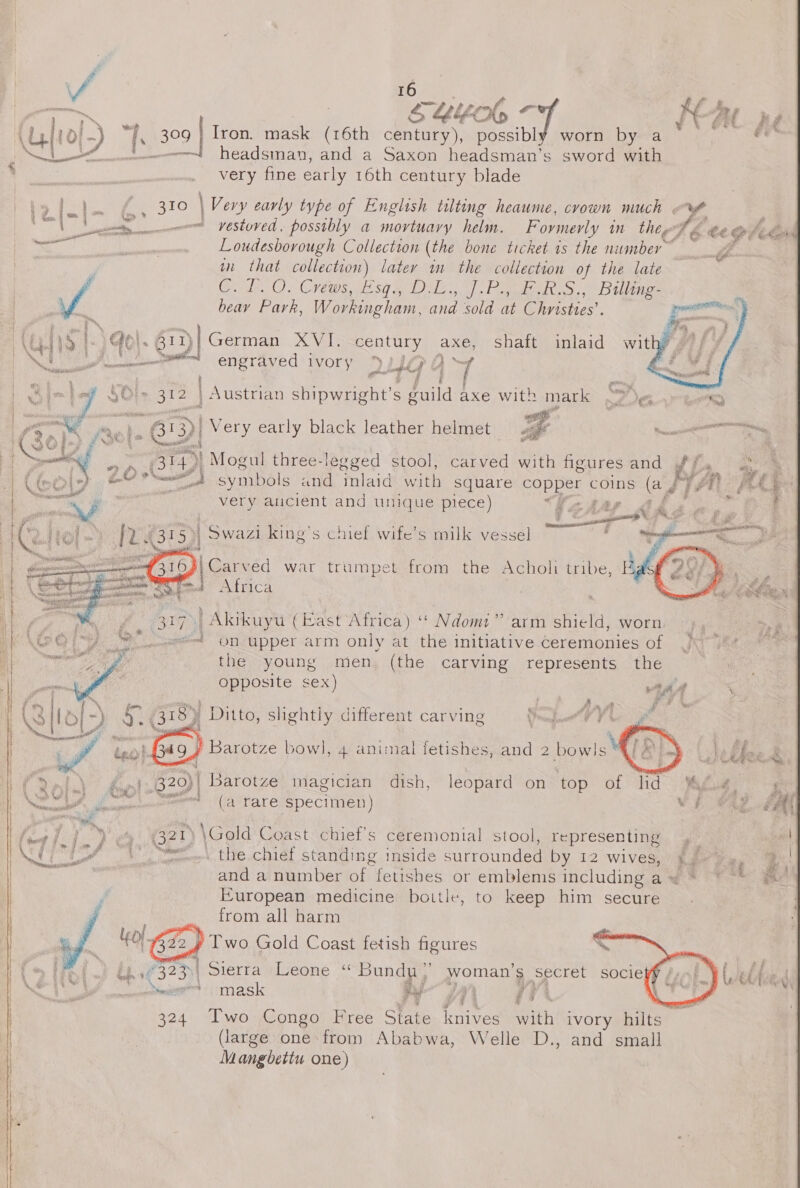 16
309 Iron mask (16th century), possibly worn by a
headsman, and a Saxon headsman's sword with
very fine early 16th century blade
310 Very early type of English tilting heaume, crown much
restored, possibly a mortuary helm. Formerly in the
Loudesborough Collection (the bone ticket is the number
in that collection) later in the collection of the late
C. T. O. Crews, Esq., D.L., J.P., F.R.S., Billing-
bear Park, Workingham, and sold at Christies'.
311 German XVI. century axe, shaft inlaid with
engraved ivory
312 Austrian shipwright's guild axe with mark
313 Very early black leather helmet
314 Mogul three-legged stool, carved with figures and
symbols and inlaid with square copper coins (a
very ancient and unique piece)
315 Swazi king's chief wife's milk vessel
316 Carved war trumpet from the Acholi tribe, East
Africa
317 Akikuyu (East Africa) “Ndomi” arm shield, worn
on upper arm only at the initiative ceremonies of
the young men, (the carving represents the
opposite sex)
318 Ditto, slightly different carving
319 Barotze bowl, 4 animal fetishes, and 2 bowls
320 Barotze magician dish, leopard on top of lid
(a rare specimen)
321 Gold Coast chief's ceremonial stool, representing
the chief standing inside surrounded by 12 wives,
and a number of fetishes or emblems including a
European medicine bottle, to keep him secure
from all harm
322 Two Gold Coast fetish figures
323 Sierra Leone “Bundu” woman's secret society
mask
324 Two Congo Free State knives with ivory hilts
(large one from Ababwa, Welle D., and small
Mangbettu one)